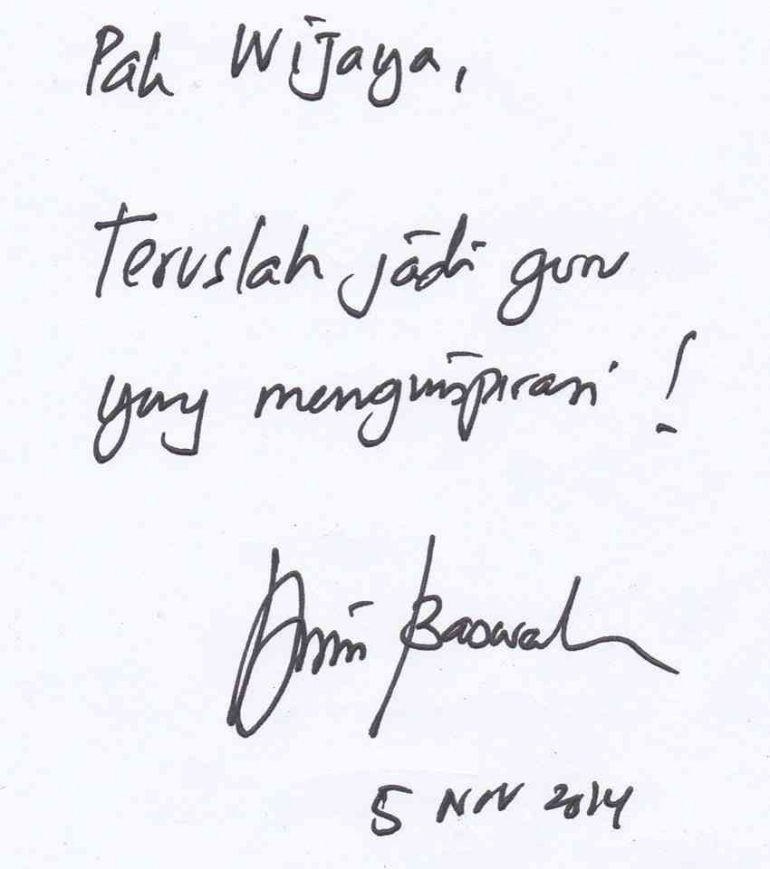 Pak Wijaya,
Teruslah jadi guru
yang menginspirasi!
Anies Baswedan
5 Nov 2014